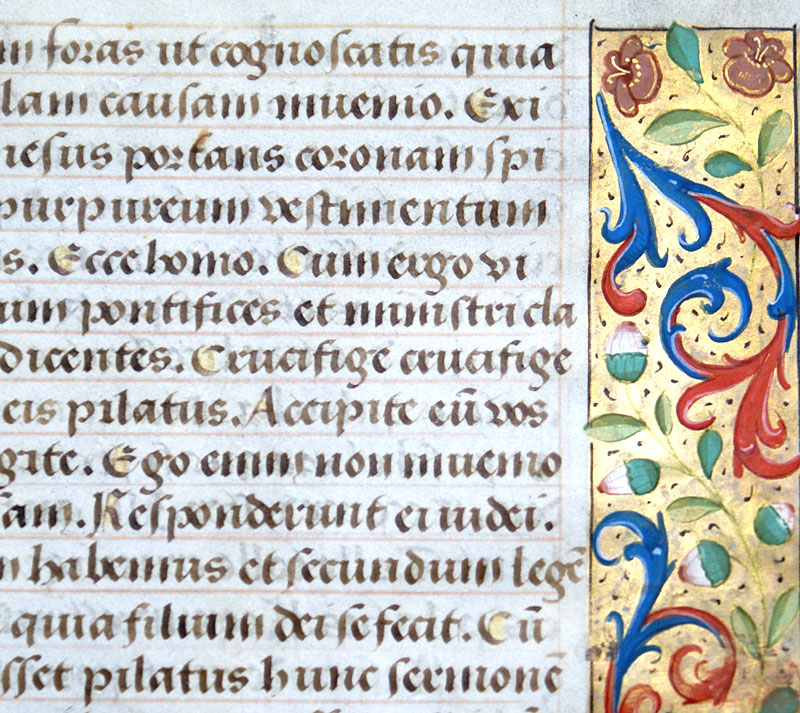 m foras ut cognoscatis quia
lam causam inuenio. Exi
iesus portans coronam spi
purpureum vestimentum
s. Ecce homo. Cum ergo vi
um pontifices et ministri cla
dicentes. Crucifige crucifige
eis pilatus. Accipite eū vos
gite. Ego enim non inuenio
sam. Responderunt ei iudei.
m habemus et secundum legē
quia filium dei se fecit. Cū
sset pilatus hunc sermonē